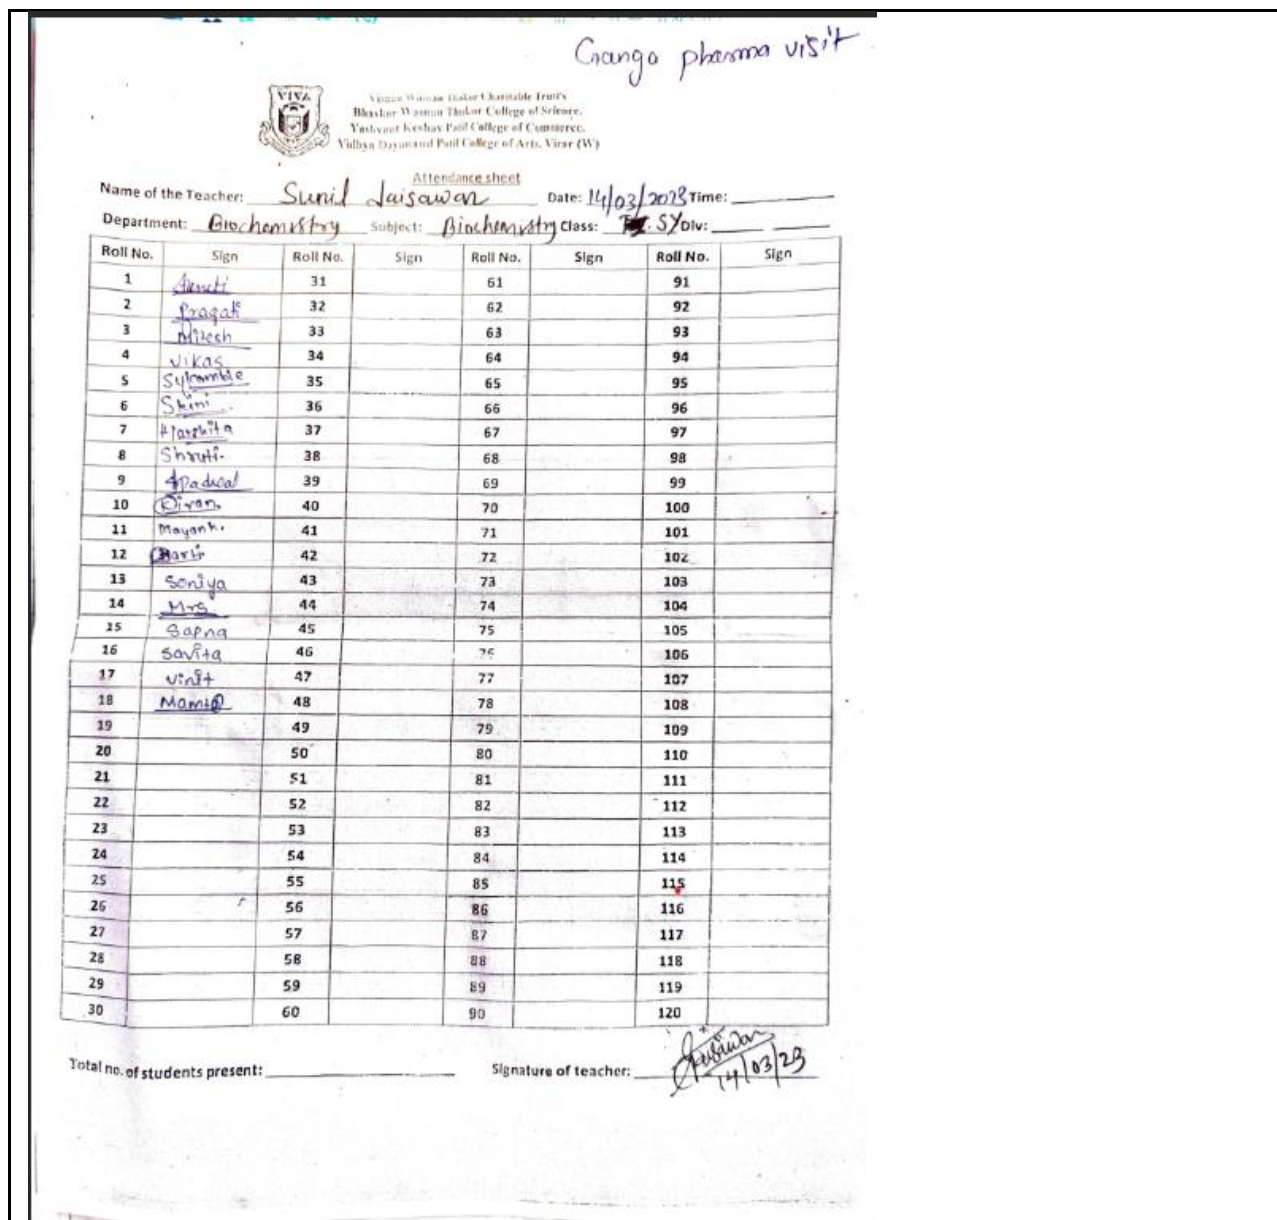 Ganga pharma visit
VIVA
Vishnu Waman Thakur Charitable Trust's
Bhaskar Waman Thakur College of Science,
Yashvant Keshav Patil College of Commerce,
Vidhya Dayanand Patil College of Arts, Virar (W)
Attendance sheet
Name of the Teacher: Sunil Jaisawar Date: 14/03/2023 Time:
Department: Biochemistry Subject: Biochemistry Class: SY Div:
Roll No. Sign Roll No. Sign Roll No. Sign Roll No. Sign
1 31 61 91
2 Pragati 32 62 92
3 Mitesh 33 63 93
4 Vikas 34 64 94
5 35 65 95
6 36 66 96
7 Harshita 37 67 97
8 Shruti 38 68 98
9 39 69 99
10 Kiran 40 70 100
11 Mayank. 41 71 101
12 42 72 102
13 Soniya 43 73 103
14 44 74 104
15 Sapna 45 75 105
16 Savita 46 76 106
17 Vinit 47 77 107
18 Mamta 48 78 108
19 49 79 109
20 50 80 110
21 51 81 111
22 52 82 112
23 53 83 113
24 54 84 114
25 55 85 115
26 56 86 116
27 57 87 117
28 58 88 118
29 59 89 119
30 60 90 120
Total no. of students present: Signature of teacher:
14/03/23